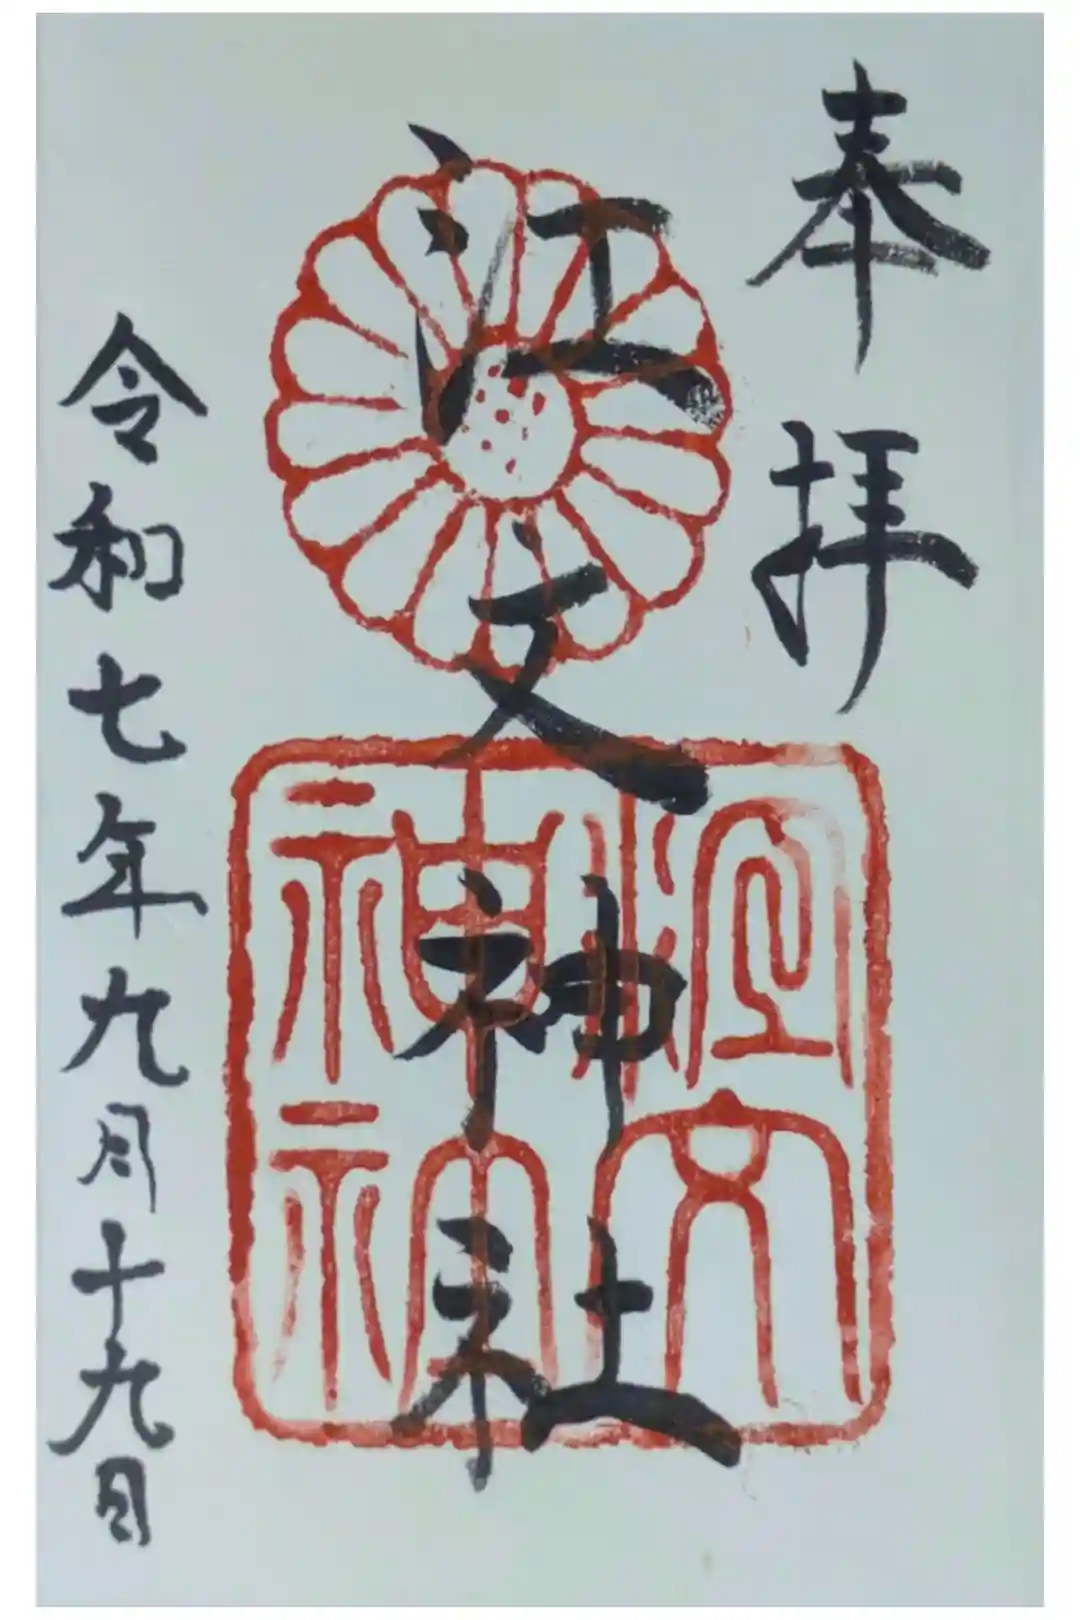 奉拝
江文神社
江文
神社
令和七年九月十九日